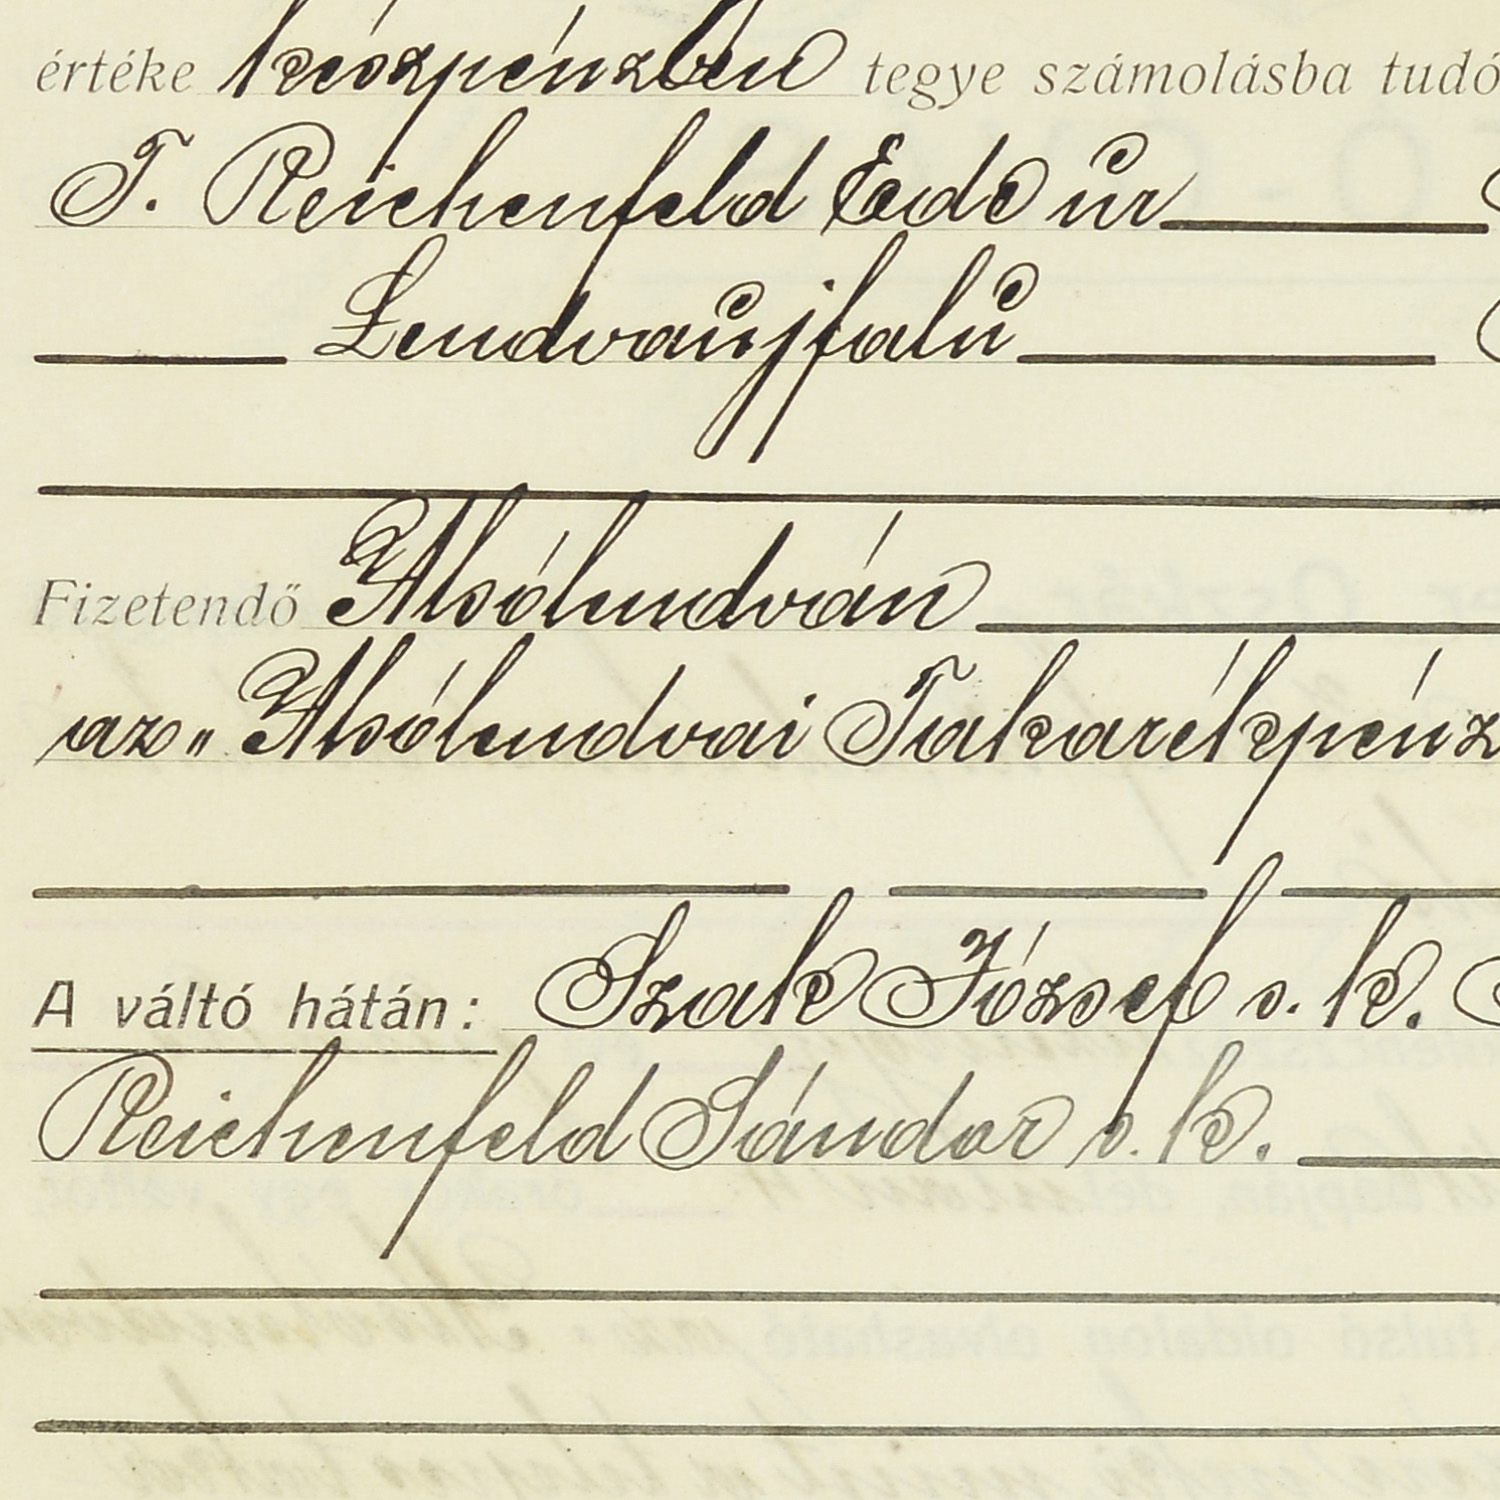 értéke készpénzben tegye számolásba tudó
T. Reichenfeld Ede úr
Lendvaújfalú
Fizetendő Alsólendván
az „Alsólendvai Takarékpénz
A váltó hátán: Szak József s. k.
Reichenfeld Sándor s. k.